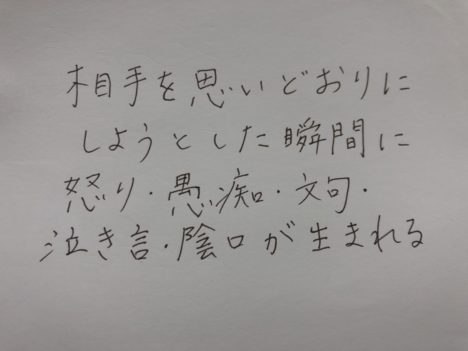 相手を思いどおりに
しようとした瞬間に
怒り・愚痴・文句・
泣き言・陰口が生まれる